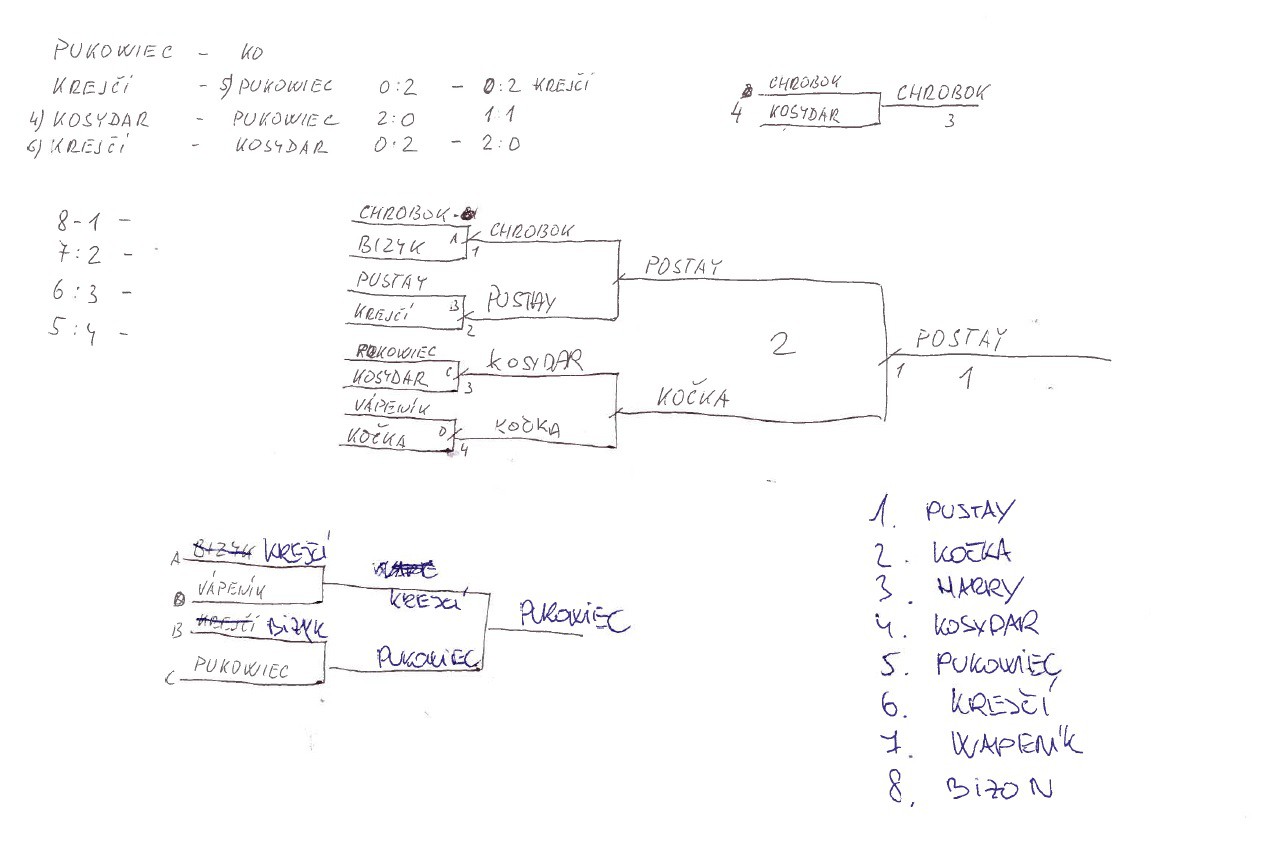 PUKOWIEC - KO
KREJČÍ - 5) PUKOWIEC 0:2 - 0:2 KREJČÍ
4) KOSYDAR - PUKOWIEC 2:0 1:1
6) KREJČÍ - KOSYDAR 0:2 - 2:0
CHROBOK
4 KOSYDAR
CHROBOK
3
8-1 -
7:2 -
6:3 -
5:4 -
CHROBOK -
BIZYK A
1
CHROBOK
PUSTAY
KREJČÍ B
2
PUSTAY
POSTAY
PUKOWIEC
KOSYDAR C
3
KOSYDAR
VÁPENÍK
KOČKA D
4
KOČKA
KOČKA
2
POSTAY
1
1
A BIZYK KREJČÍ
VÁPENÍK
B KREJČÍ BIZYK
C PUKOWIEC
KREJČÍ
PUKOWIEC
PUKOWIEC
1. PUSTAY
2. KOČKA
3. HARRY
4. KOSYDAR
5. PUKOWIEC
6. KREJČÍ
7. WAPENÍK
8. BIZON